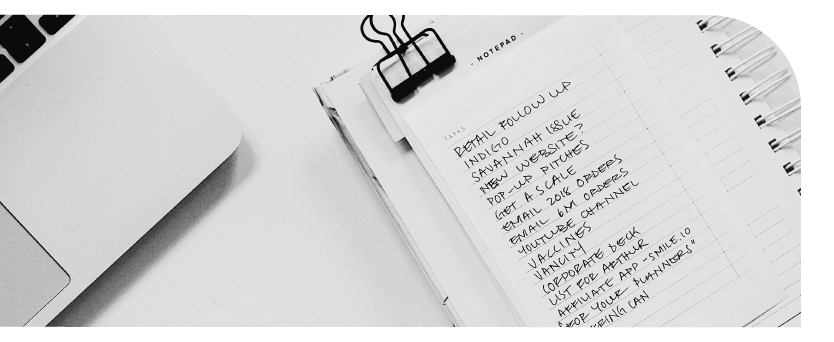 - NOTEPAD -
TASKS
RETAIL FOLLOW UP
INDIGO
SAVANNAH ISSUE
NEW WEBSITE?
POP-UP PITCHES
GET A SCALE
EMAIL 2018 ORDERS
EMAIL 6M ORDERS
YOUTUBE CHANNEL
VACCINES
VANCITY
CORPORATE DECK
LIST FOR ARTHUR
AFFILIATE APP - SMILE.IO
"FOR YOUR PLANNERS"
CAN